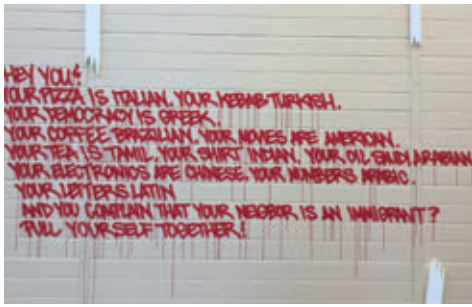 HEY YOU!
YOUR PIZZA IS ITALIAN. YOUR KEBAB TURKISH.
YOUR DEMOCRACY IS GREEK.
YOUR COFFEE BRAZILIAN. YOUR MOVIES ARE AMERICAN.
YOUR TEA IS TAMIL. YOUR SHIRT INDIAN. YOUR OIL SAUDI ARABIAN
YOUR ELECTRONICS ARE CHINESE. YOUR NUMBERS ARABIC.
YOUR LETTERS LATIN
AND YOU COMPLAIN THAT YOUR NEIGBOR IS AN IMMIGRANT?
PULL YOURSELF TOGETHER!